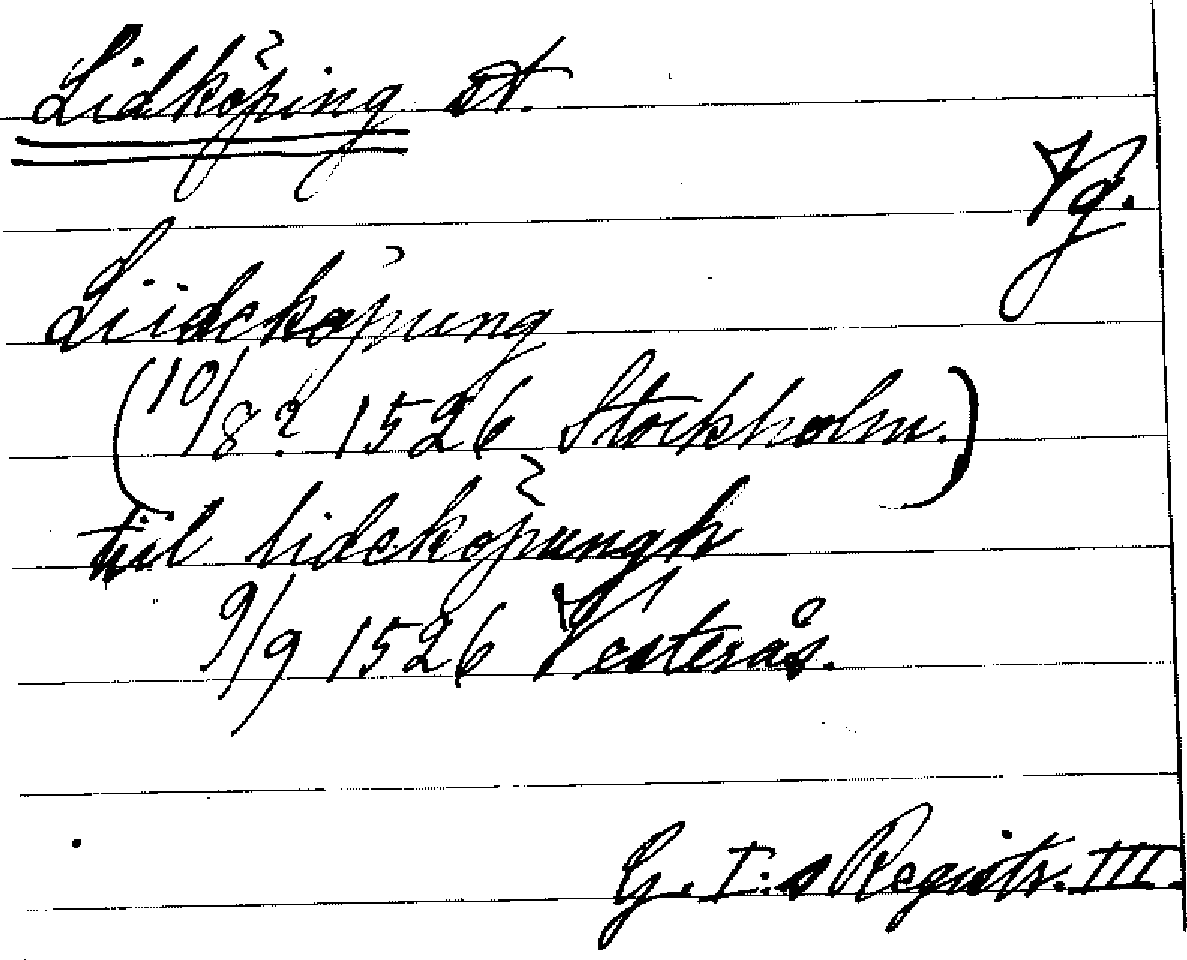 Lidköping st.
Vg.
Liidcköpung
(10/8? 1526 Stockholm.)
till lidcköpungh
9/9 1526 Vesterås.
G. I:s Registr. III.